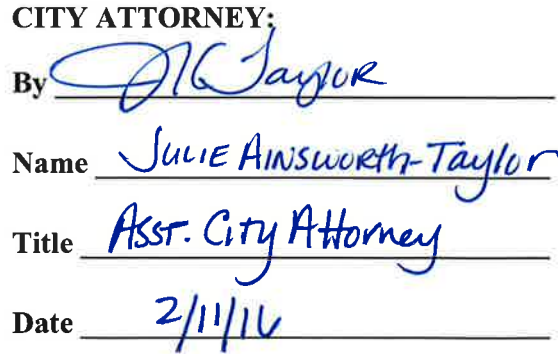 CITY ATTORNEY:
By JK Taylor
Name Julie Ainsworth-Taylor
Title Asst. City Attorney
Date 2/11/16